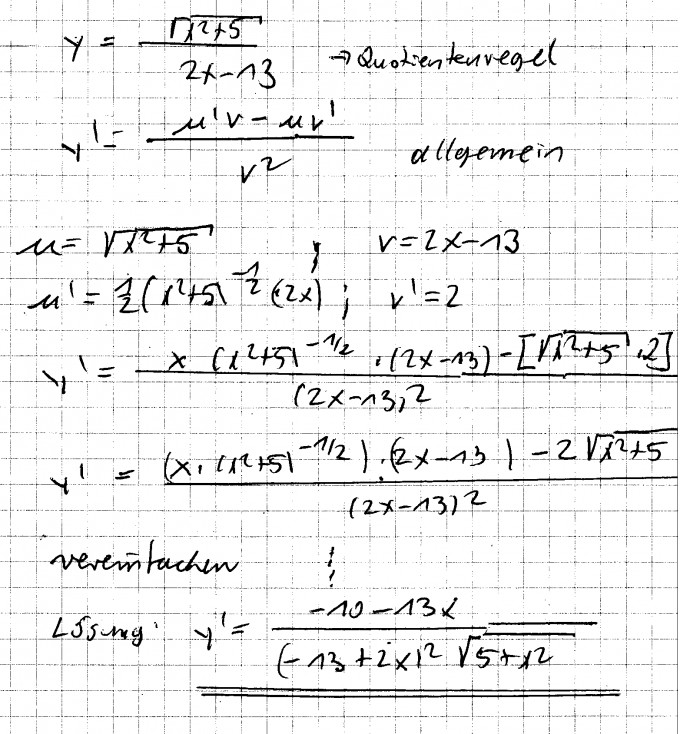 y = √(x²+5) / (2x-13) → Quotientenregel
y' = (u'v - uv') / v² allgemein
u = √(x²+5) ; v = 2x-13
u' = ½(x²+5)^(-1/2) (2x) ; v' = 2
y' = (x (x²+5)^(-1/2) · (2x-13) - [√(x²+5) · 2]) / (2x-13)²
y' = ((x · (x²+5)^(-1/2)) · (2x-13) - 2√(x²+5)) / (2x-13)²
vereinfachen ⋮
Lösung: y' = (-10-13x) / ((-13+2x)² √(5+x²))